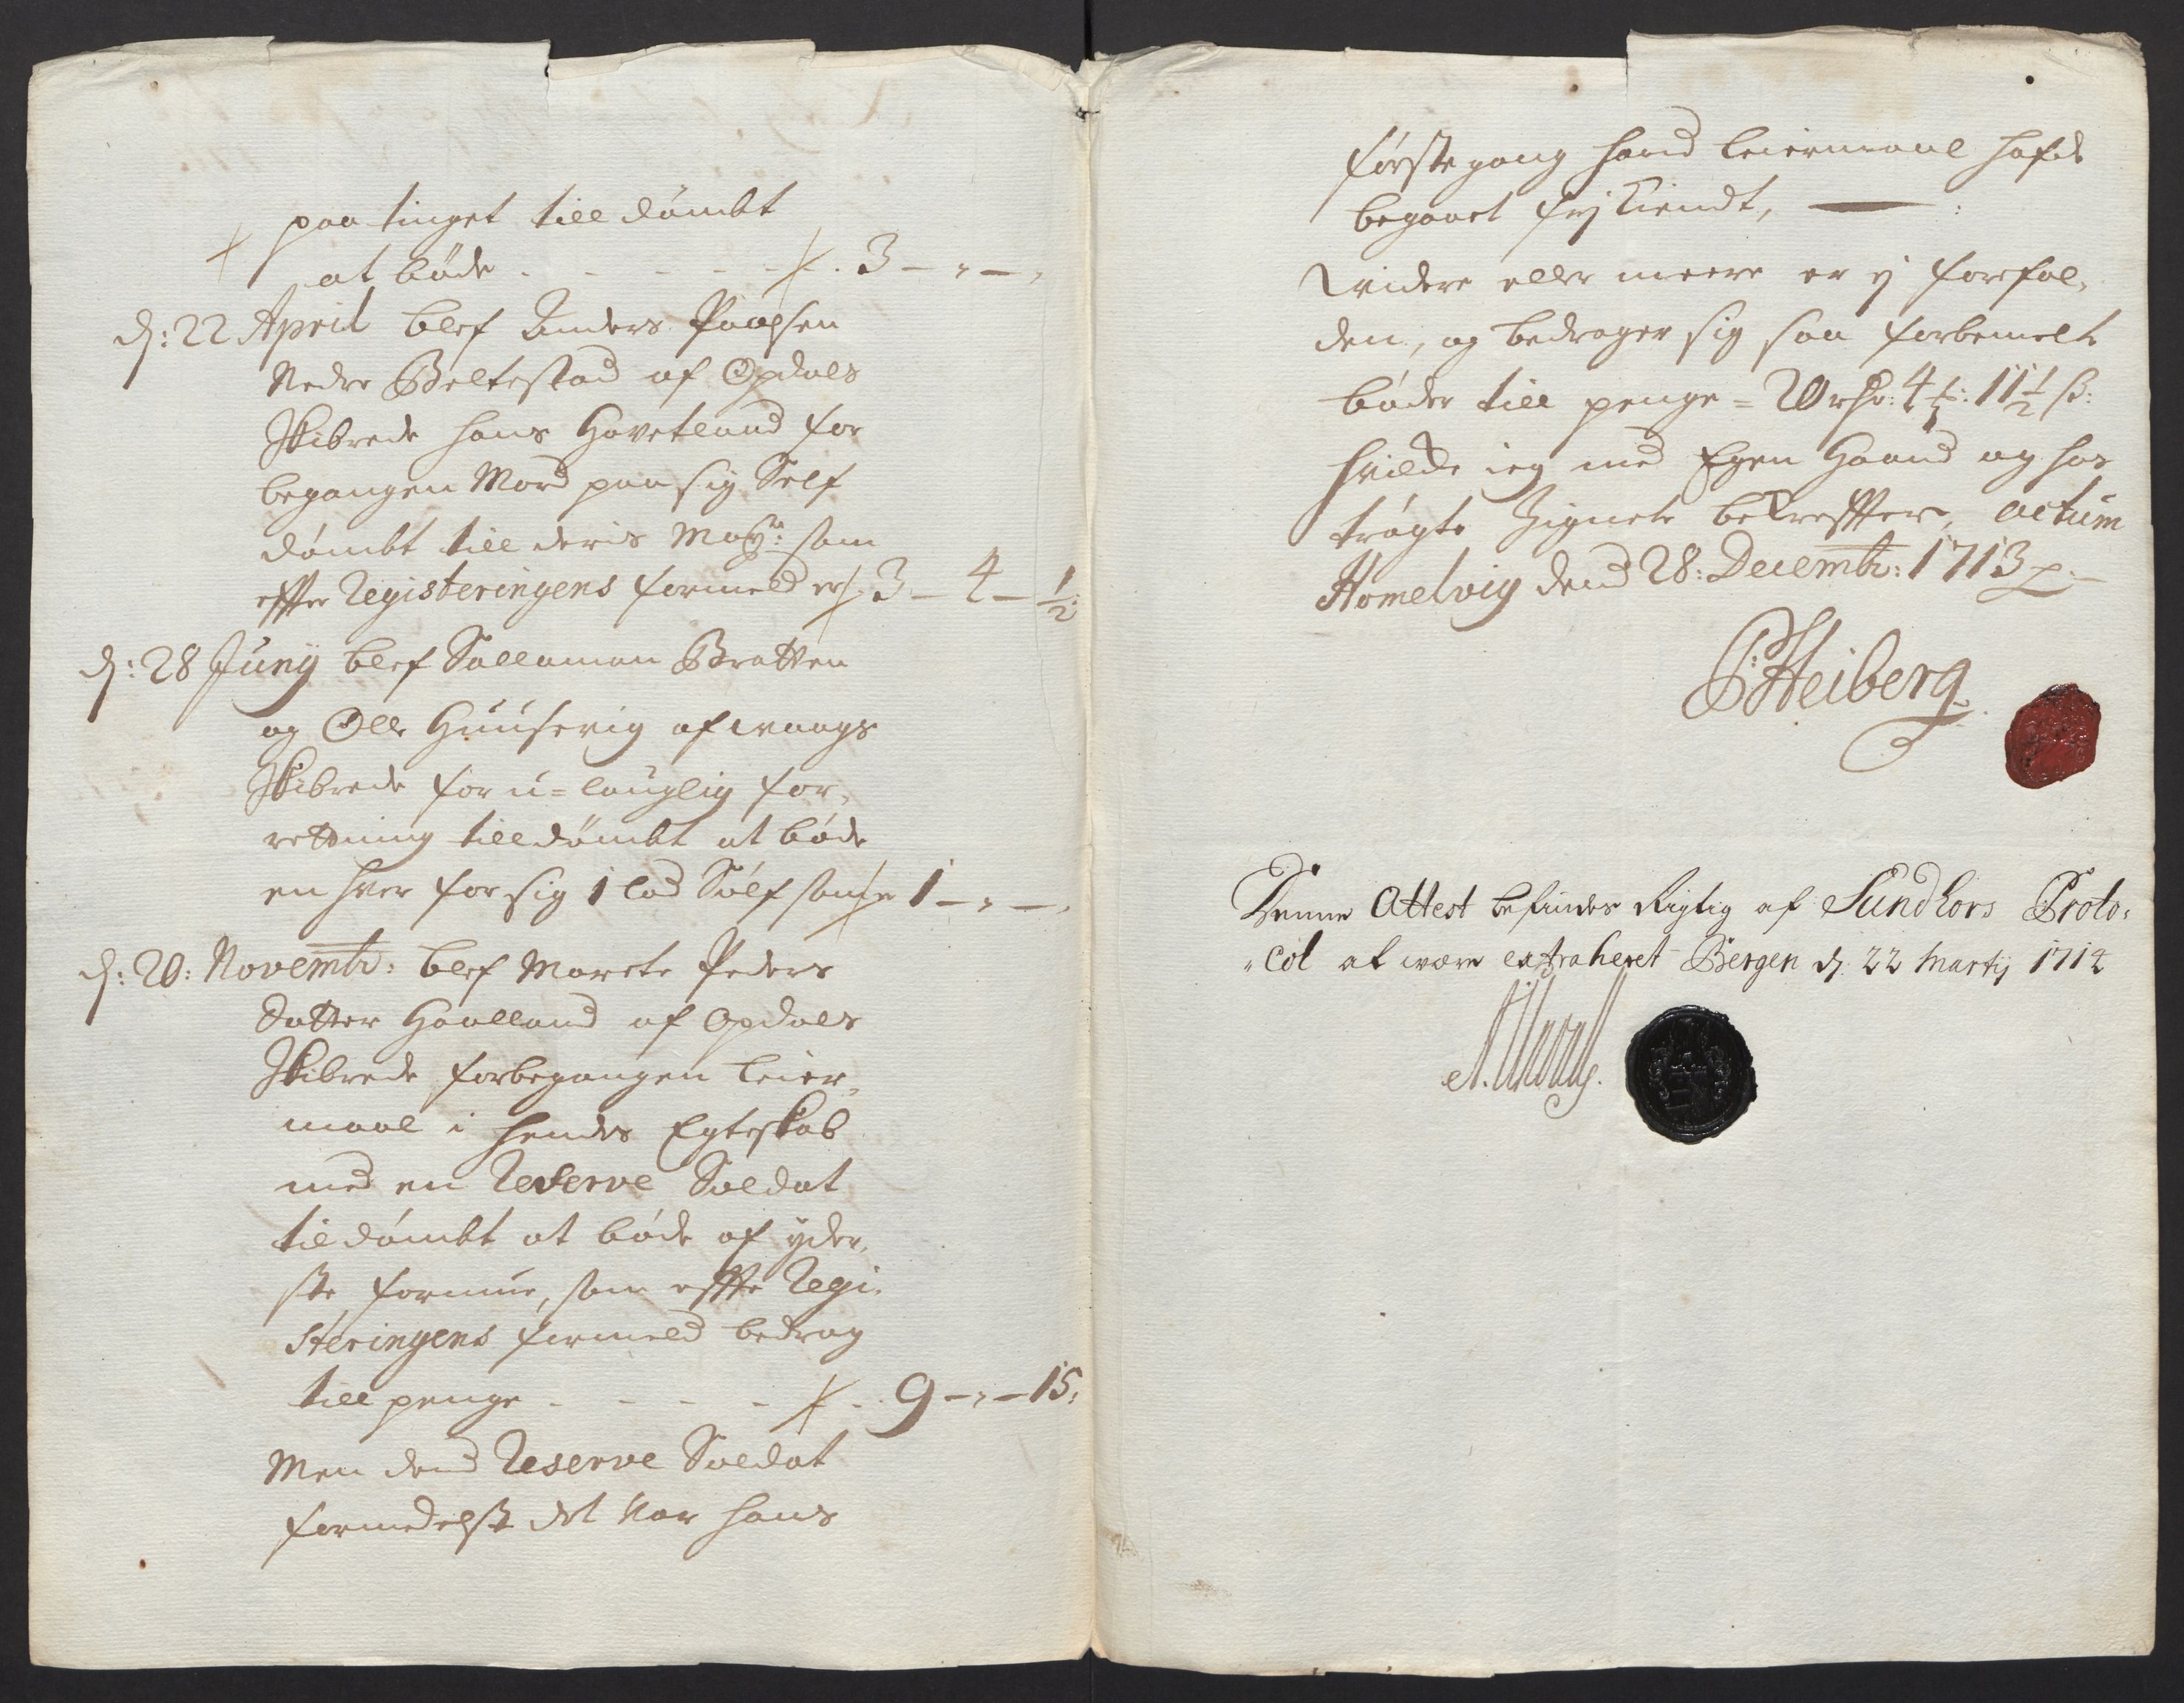 paa tinget till dömbt
at böde - - - - - 3 - " - "
d: 22 April blef Anders Poelsen
Nedre Beltestad af Opdals
Skibrede hans Hovetlaud for
begangen Mord paa sig Self
dömbt till deris May: som
effter Registeringens formeld er 3 - 4 - 1/2
d: 28 Junij blef Sallamon Bratten
og Olle Huuservig af waags
Skibrede for u=lauglig for,
rettning till dömbt at böde
en hver for sig 1 lod Sölf som er 1 - " - "
d: 20: Novembr: blef Marete Peders
Datter Haalland af Opdals
Skibrede for begangen Leier,
maal i hendes Egteskab
med en Reserve Soldat
till dömbt at böde af yder,
ste formue, som effter Regi,
steringens formeld bedrog
till penge - - - - 9 - " - 15:
Men dend Reserve Soldat
formedelst det Var hans
förste gang hand Leiermaal hafde
begaaet frj Kiendt, —— :
widere eller meere er ej forfal,
den, og bedrager sig saa forbemelte
böder till penge = 20 rdr: 4 : 11 1/2 ß:
hvilcke ieg med Egen Haand og hos
trögte Zignete bekreffter, actum
Homelvig dend 28: Decembr: 1713
P: Heiberg
Denne Attest befindes Rigtig af Sundhors Proto,
"col at wære extraheret Bergen d: 22 Martij 1714